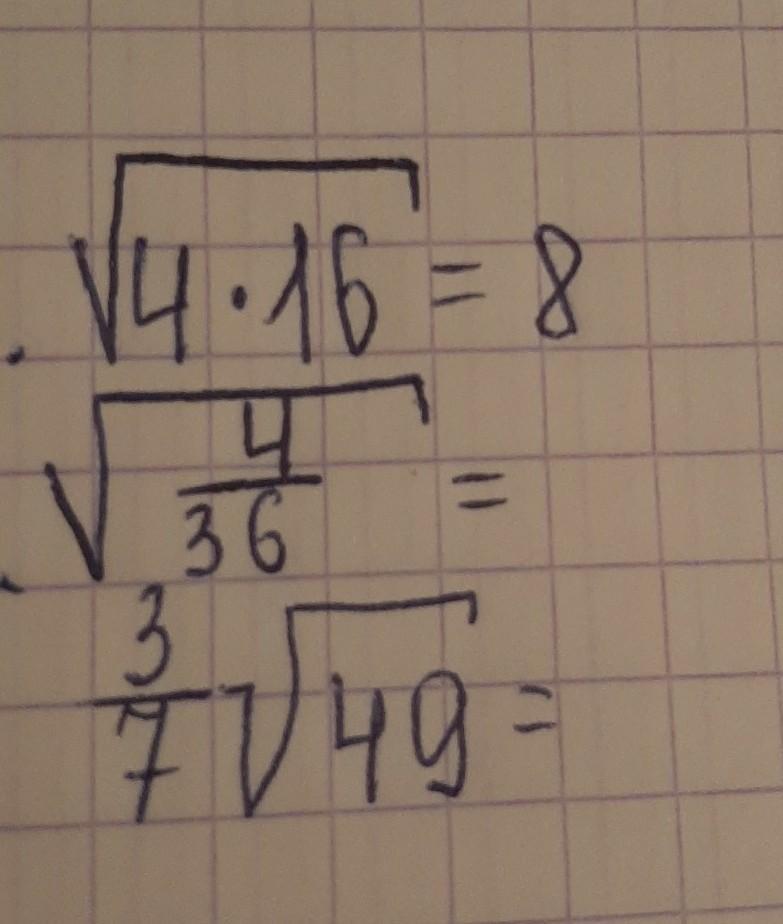 √4·16 = 8
√4/36 =
3/7 √49 =